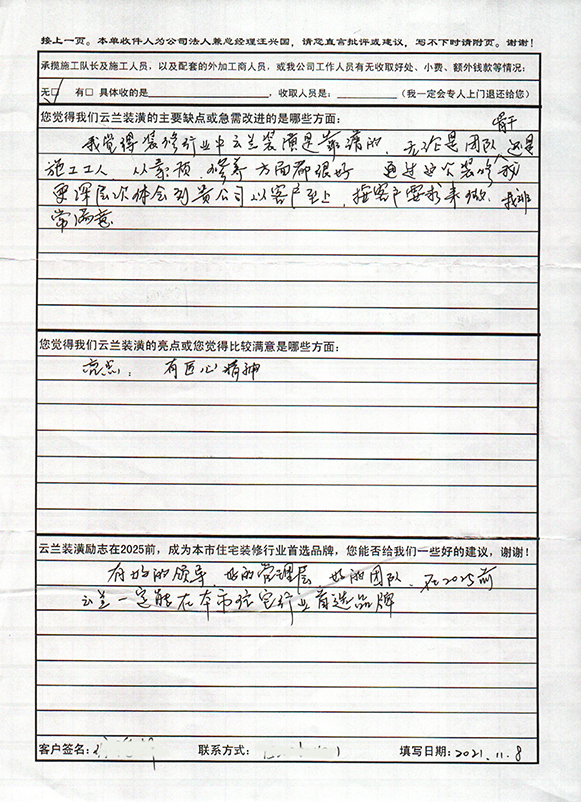 接上一页。本单收件人为公司法人兼总经理汪兴国,请您直言批评或建议,写不下时请附页。谢谢!
承揽施工队长及施工人员,以及配套的外加工商人员,或我公司工作人员有无收取好处、小费、额外钱款等情况:
无□ 有□ 具体收的是________,收取人员是:________(我一定会专人上门退还给您)
您觉得我们云兰装潢的主要缺点或急需改进的是哪些方面:
骨干
我觉得装修行业中云兰装潢是靠谱的、无论是团队 还是
施工工人、从素质、修养方面都很好 通过这次装修 我
更深层次体会到贵公司以客户至上、按客户要求来做、我非
常满意
您觉得我们云兰装潢的亮点或您觉得比较满意是哪些方面:
亮点: 有匠心精神
云兰装潢励志在2025前,成为本市住宅装修行业首选品牌,您能否给我们一些好的建议,谢谢!
有好的领导、好的管理层、好的团队、在2025前
云兰一定能在本市住宅行业首选品牌
客户签名: 联系方式: 填写日期:2021.11.8